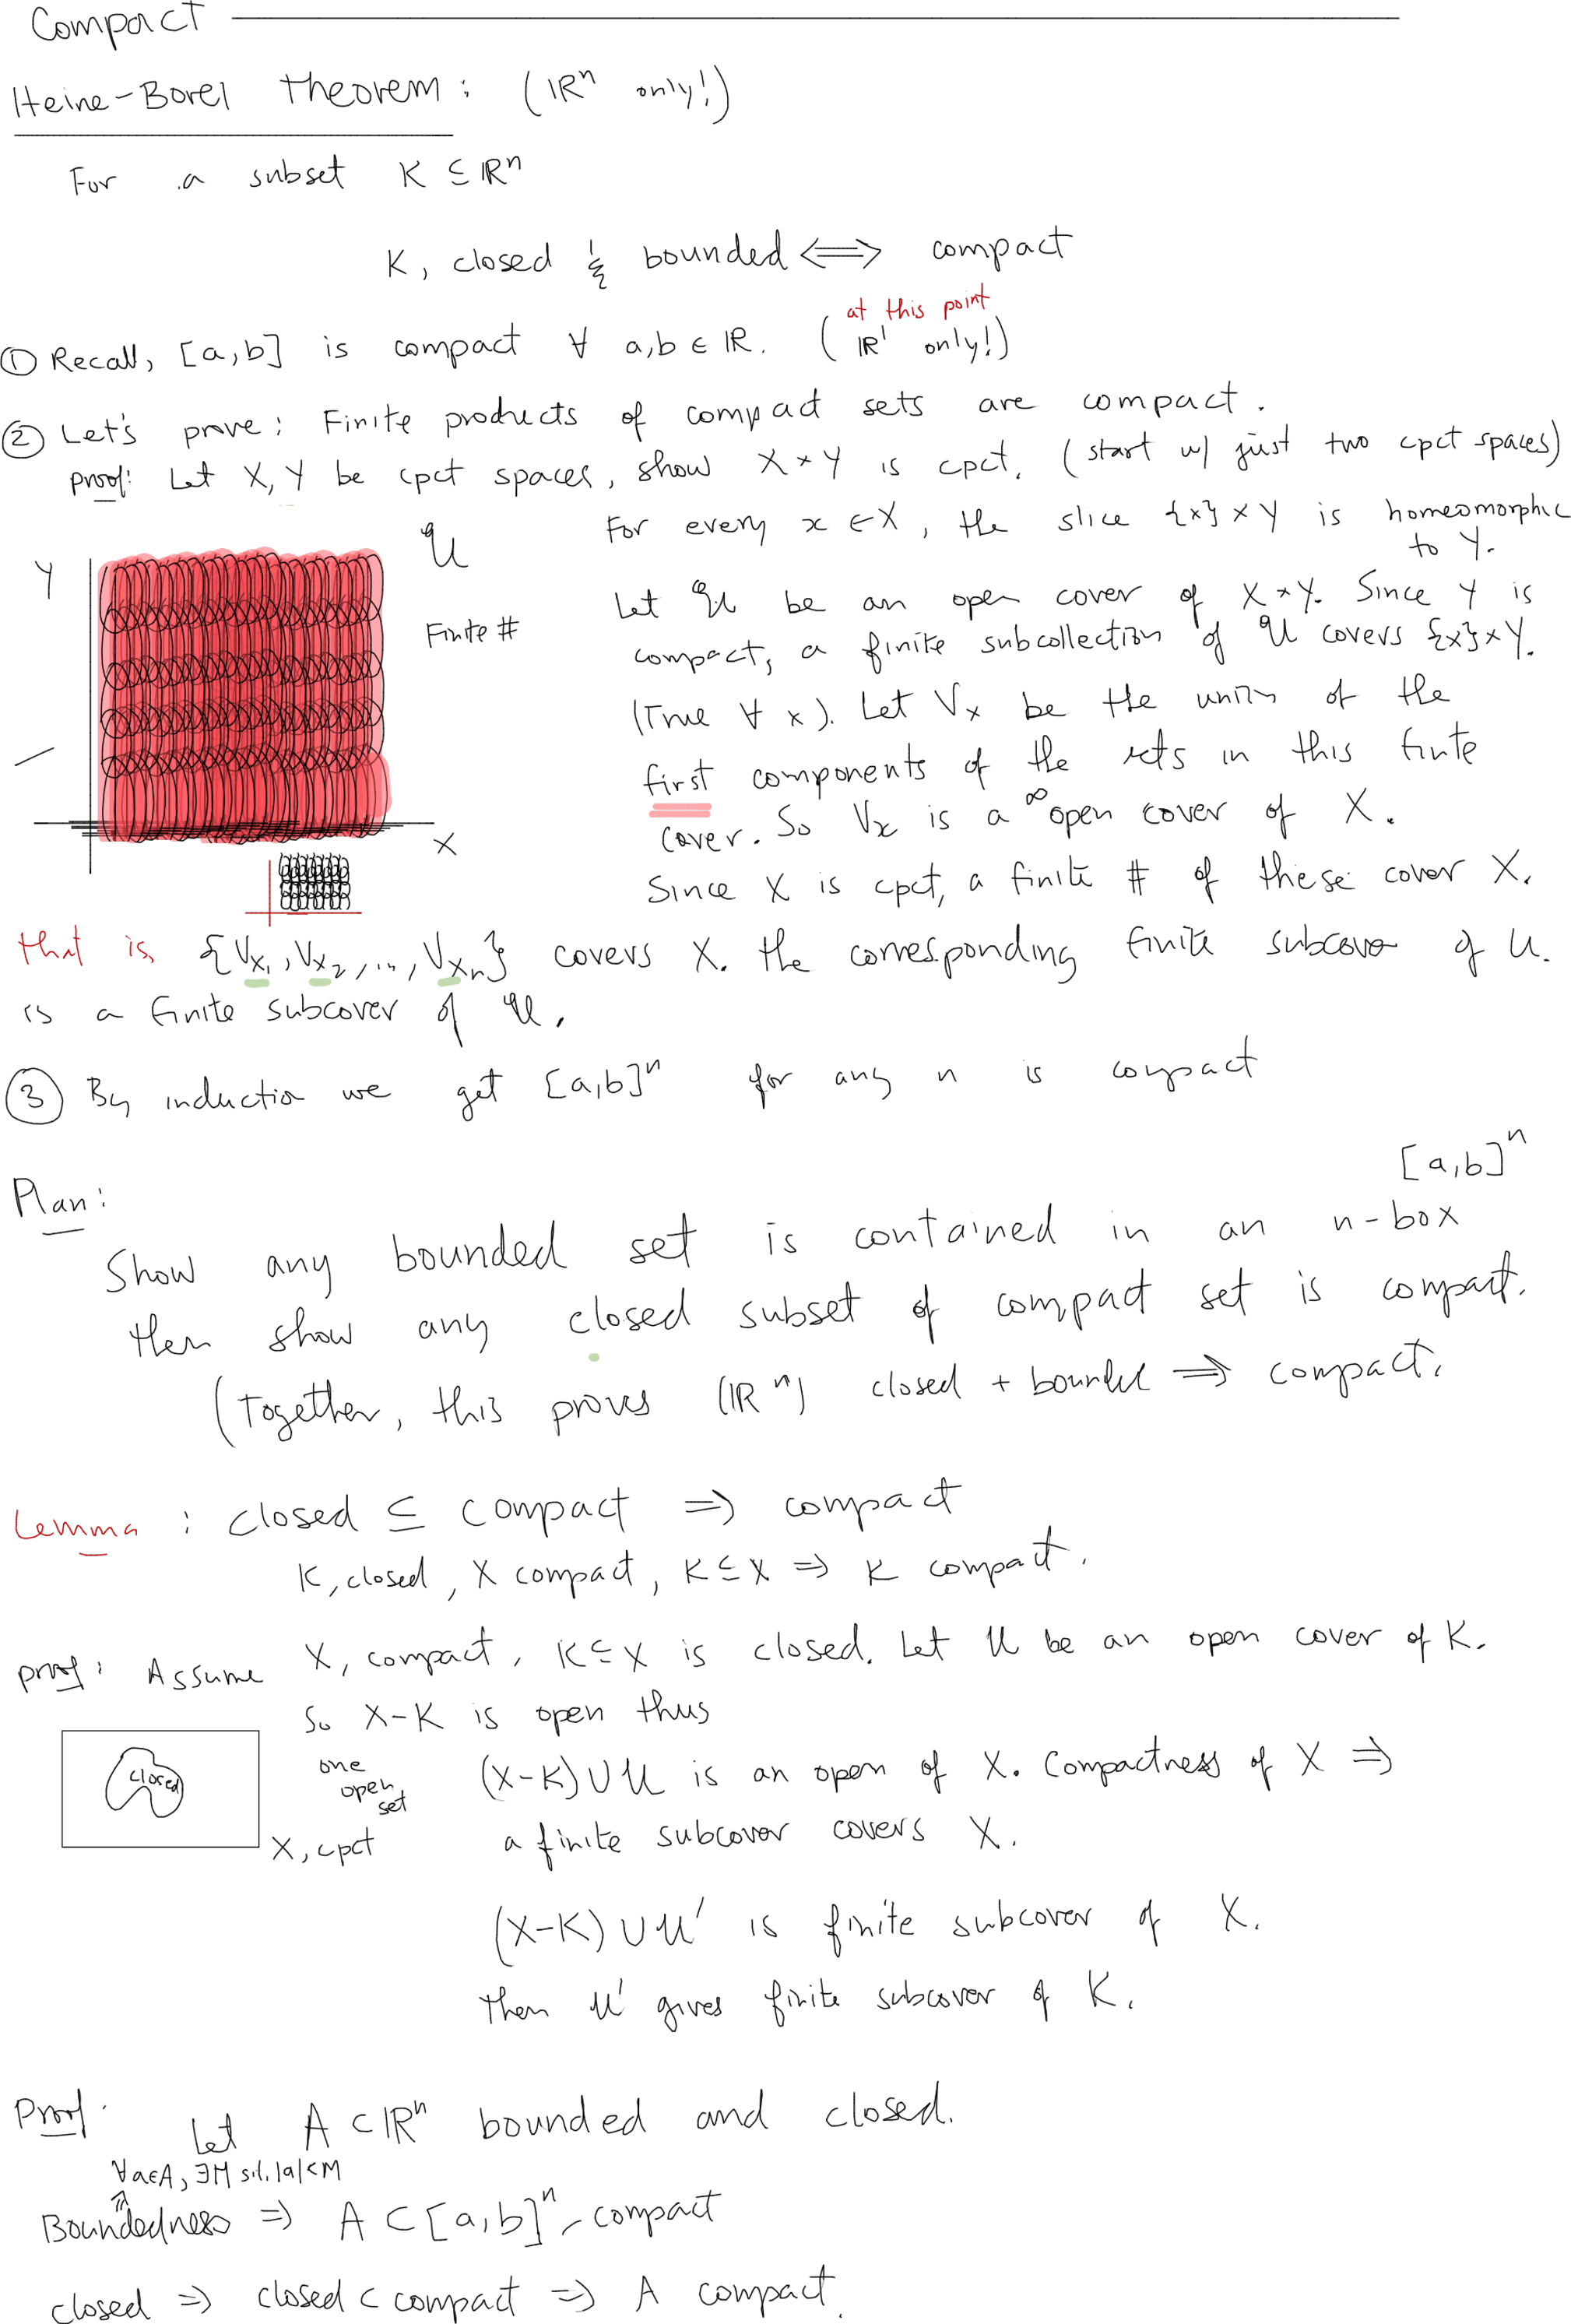 Compact
Heine-Borel Theorem: (ℝⁿ only!)
For a subset K ⊆ ℝⁿ
K, closed & bounded ⟺ compact
at this point
① Recall, [a,b] is compact ∀ a,b ∈ ℝ. (ℝ¹ only!)
② Let's prove: Finite products of compact sets are compact.
proof: Let X, Y be cpct spaces, show X × Y is cpct. (start w/ just two cpct spaces)
For every x ∈ X, the slice {x} × Y is homeomorphic
to Y.
Y
𝒰
Finite #
X
Let 𝒰 be an open cover of X × Y. Since Y is
compact, a finite subcollection of 𝒰 covers {x} × Y.
(True ∀ x). Let Vₓ be the union of the
first components of the sets in this finite
cover. So Vₓ is a ∞ open cover of X.
Since X is cpct, a finite # of these cover X.
that is, {Vx₁, Vx₂, ..., Vxₙ} covers X. the corresponding finite subcover of U.
is a finite subcover of 𝒰.
③ By induction we get [a,b]ⁿ for any n is compact
[a,b]ⁿ
Plan:
Show any bounded set is contained in an n-box
then show any closed subset of compact set is compact.
(Together, this proves (ℝⁿ) closed + bounded ⟹ compact.
Lemma : closed ⊆ compact ⇒ compact
K, closed, X compact, K ⊆ X ⇒ K compact.
proof: Assume X, compact, K ⊆ X is closed. Let U be an open cover of K.
So X-K is open thus
closed
X, cpct
one
open
set
(X-K) ∪ U is an open of X. Compactness of X ⇒
a finite subcover covers X.
(X-K) ∪ U' is finite subcover of X.
then U' gives finite subcover of K.
Proof: Let A ⊂ ℝⁿ bounded and closed.
∀a∈A, ∃M s.t. |a|<M
Boundedness ⇒ A ⊂ [a,b]ⁿ, compact
closed ⇒ closed ⊂ compact ⇒ A compact.